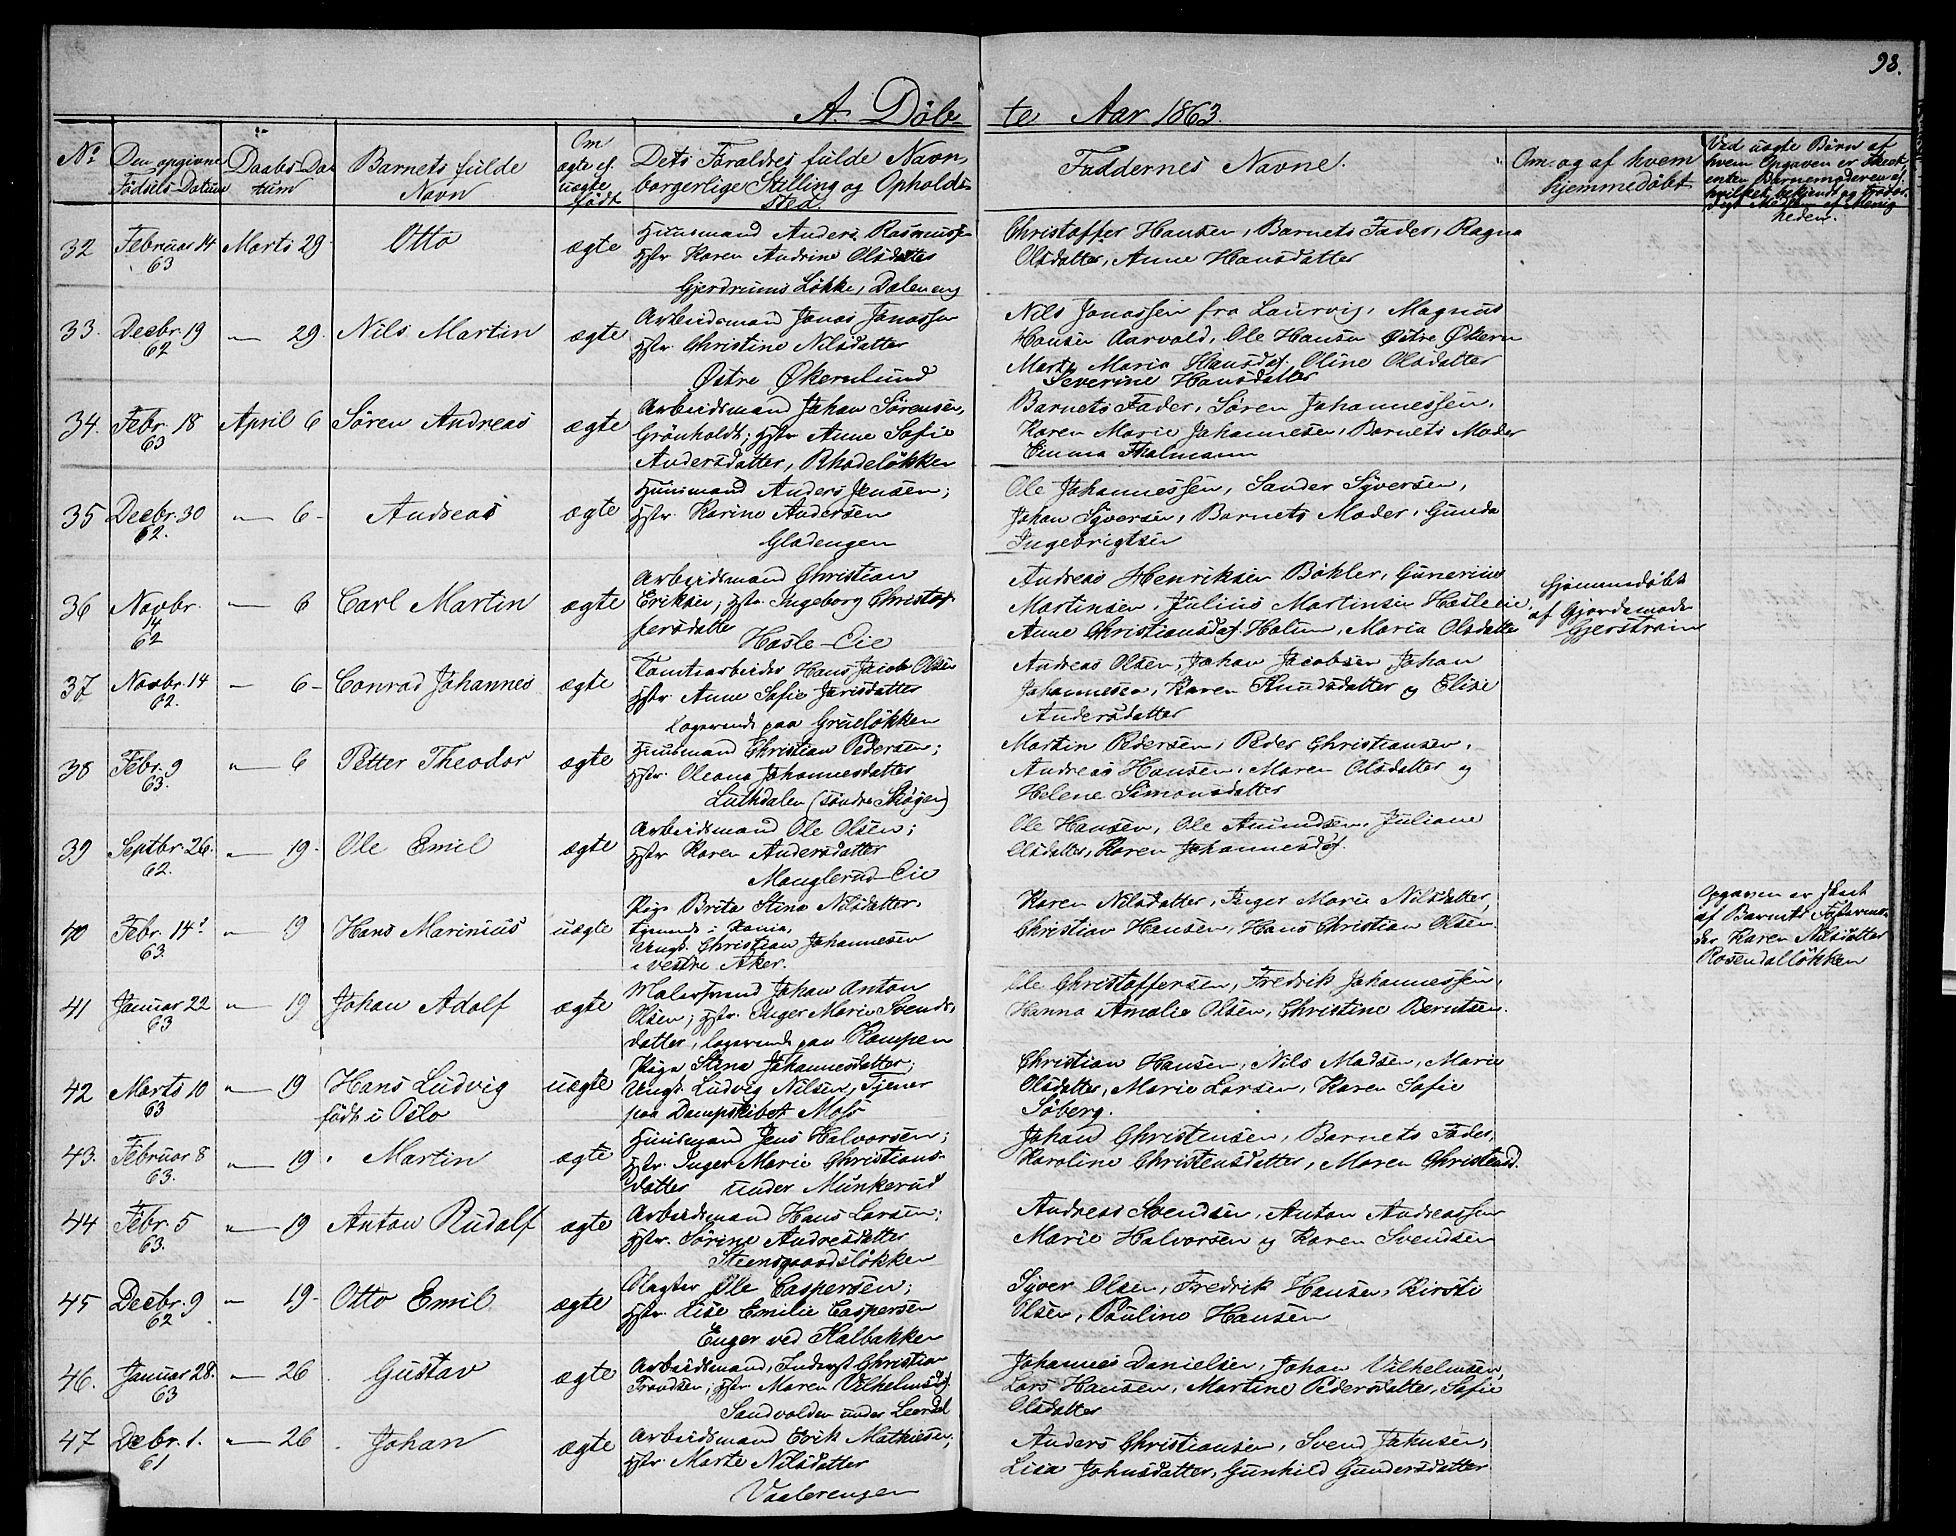 98.
A. Døb-
te Aar 1863.
No
Den opgivne Fødsels-Datum
Daabs-Datum
Barnets fulde Navn
Om ægte el. uægte født
Dets Forældres fulde Navn, borgerlige Stilling og Opholds-sted.
Faddernes Navne.
Om og af hvem hjemmedøbt
Ved uægte Børn af hvem Opgaven er skeet, enten Barnemoderen el. hvilket bekjendt og troværdigt Medlem af Menigheden.
32 Februar 14 63 Marts 29 Otto ægte
Huusmand Anders Rasmussen
Hstr. Karen Andrine Olsdatter
Gjerdrums Løkke, Dæleneng
Christoffer Hansen, Barnets Fader, Ragna
Olsdatter, Anne Hansdatter
33. Decbr. 19 62 " 29. Nils Martin ægte
Arbeidsmand Jonas Jonassen
Hstr. Christine Nilsdatter
Østre Økernlund
Nils Jonassen fra Laurvig, Magnus
Hansen Aarvold, Ole Hansen Østre Økern
Marte Maria Hansdat. Oline Olsdatter
Severine Hansdatter
34. Febr. 18 63 April 6 Søren Andreas ægte
Arbeidsmand Johan Sørensen,
Grönholdt; Hstr. Anne Sofie
Andersdatter, Rhodeløkken
Barnets Fader, Søren Johannessen,
Karen Marie Johannesen, Barnets Moder
Emma Thalmann
35 Decbr. 30 62. " 6 - Andreas ægte
Huusmand Anders Jensen;
Hstr. Karine Andersen
Gladengen
Ole Johannessen, Sander Syversen,
Johan Syversen, Barnets Moder, Gunda
Ingebrigtsen
36 Novbr. 14 62 " 6 Carl Martin ægte
Arbeidsmand Christian
Eriksen; Hstr. Ingeborg Christof-
fersdatter
Hasle-Eie
Andreas Henriksen Böhler, Gunerius
Martinsen, Julius Martinsen Hasleeie,
Anne Christiansdat. Holm, Maria Olsdatter
Hjemmedøbt
af Gjordemoder
Gjerstrøm
37 Novbr. 14 62. " 6 - Conrad Johannes ægte
Tomtearbeider Hans Jacob Olsen
Hstr. Anne Sofie Jarisdatter
logerende paa Grueløkken
Andreas Olsen, Johan Jacobsen Johan
Johannessen, Karen Knudsdatter og Elise
Andersdatter
38 Febr. 9 63. " 6 Petter Theodor ægte
Huusmand Christian Pedersen;
Hstr. Oleana Johannesdatter
Luthdalen (søndre Skøyen)
Martin Pedersen, Peder Christiansen,
Andreas Hansen, Maren Olsdatter og
Helene Simonsdatter
39 Septbr. 26. 62. " 19. Ole Emil ægte
Arbeidsmand Ole Olsen;
Hstr. Karen Andersdatter
Manglerud-Eie
Ole Hansen, Ole Amundsen, Juliane
Olsdatter, Karen Johannesdat.
40 Febr. 14 63. " 19 Hans Marinius uægte
Pige Brita Stina Nilsdatter,
tjenende i Xania,
Ungk. Christian Johannesen
i vestre Aker.
Karen Nilsdatter, Inger Marie Nilsdatter,
Christian Hansen, Hans Christian Olsen
Opgaven er skeet
af Barnets Fostermo-
der Karen Nilsdatter
Rosendalløkken
41 Januar 22 63 " 19 Johan Adolf ægte
Malersvend Johan Anton
Olsen; Hstr. Inger Marie Svends-
datter, logerende paa Kampen
Ole Christoffersen, Fredrik Johannessen,
Hanna Amalie Olsen, Christine Berntsen.
42 Marts 10 63 " 19 Hans Ludvig
født i Oslo uægte
Pige Stina Johannesdatter;
Ungk. Ludvig Nilsen, Tjener
paa Dampskibet Moss
Christian Hansen, Nils Madsen, Marie
Olsdatter, Marie Larsen, Karen Sofie
Söberg.
43. Februar 8 63. " 19 Martin ægte
Huusmand Jens Halvorsen;
Hstr. Inger Marie Christians-
datter under Munkerud
Johan Christensen, Barnets Fader,
Karoline Christensdatter, Maren Christensd.
44 Febr. 5 63. " 19 Anton Rudolf ægte
Arbeidsmand Hans Larsen;
Hstr. Sørine Andresdatter
Steensgaardsløkken
Andreas Svendsen, Anton Andreassen
Marie Halvorsen og Karen Svendsen
45 Decbr. 9 62 " 19 - Otto Emil ægte
Slagter Ole Caspersen;
Hstr. Lise Emilie Caspersen
Enger ved Kalbakken
Syver Olsen, Fredrik Hansen, Kirsti
Olsen, Pauline Hansen
46. Januar 28. 63 " 26 Gustav ægte
Arbeidsmand, Inderst Christian
Frandsen; Hstr. Maren Vilhelmsdat.
Sandvolden under Leerdal
Johannes Danielsen, Johan Vilhelmsen,
Lars Hansen, Martine Pedersdatter, Sofie
Olsdatter
47 Decbr. 1. 61 " 26 Johan ægte
Arbeidsmand Erik Mathiesen;
Hstr. Marte Nilsdatter
Vaalerengen
Anders Christiansen, Svend Johnsen,
Lisa Johnsdatter, Gunhild Gundersdatter